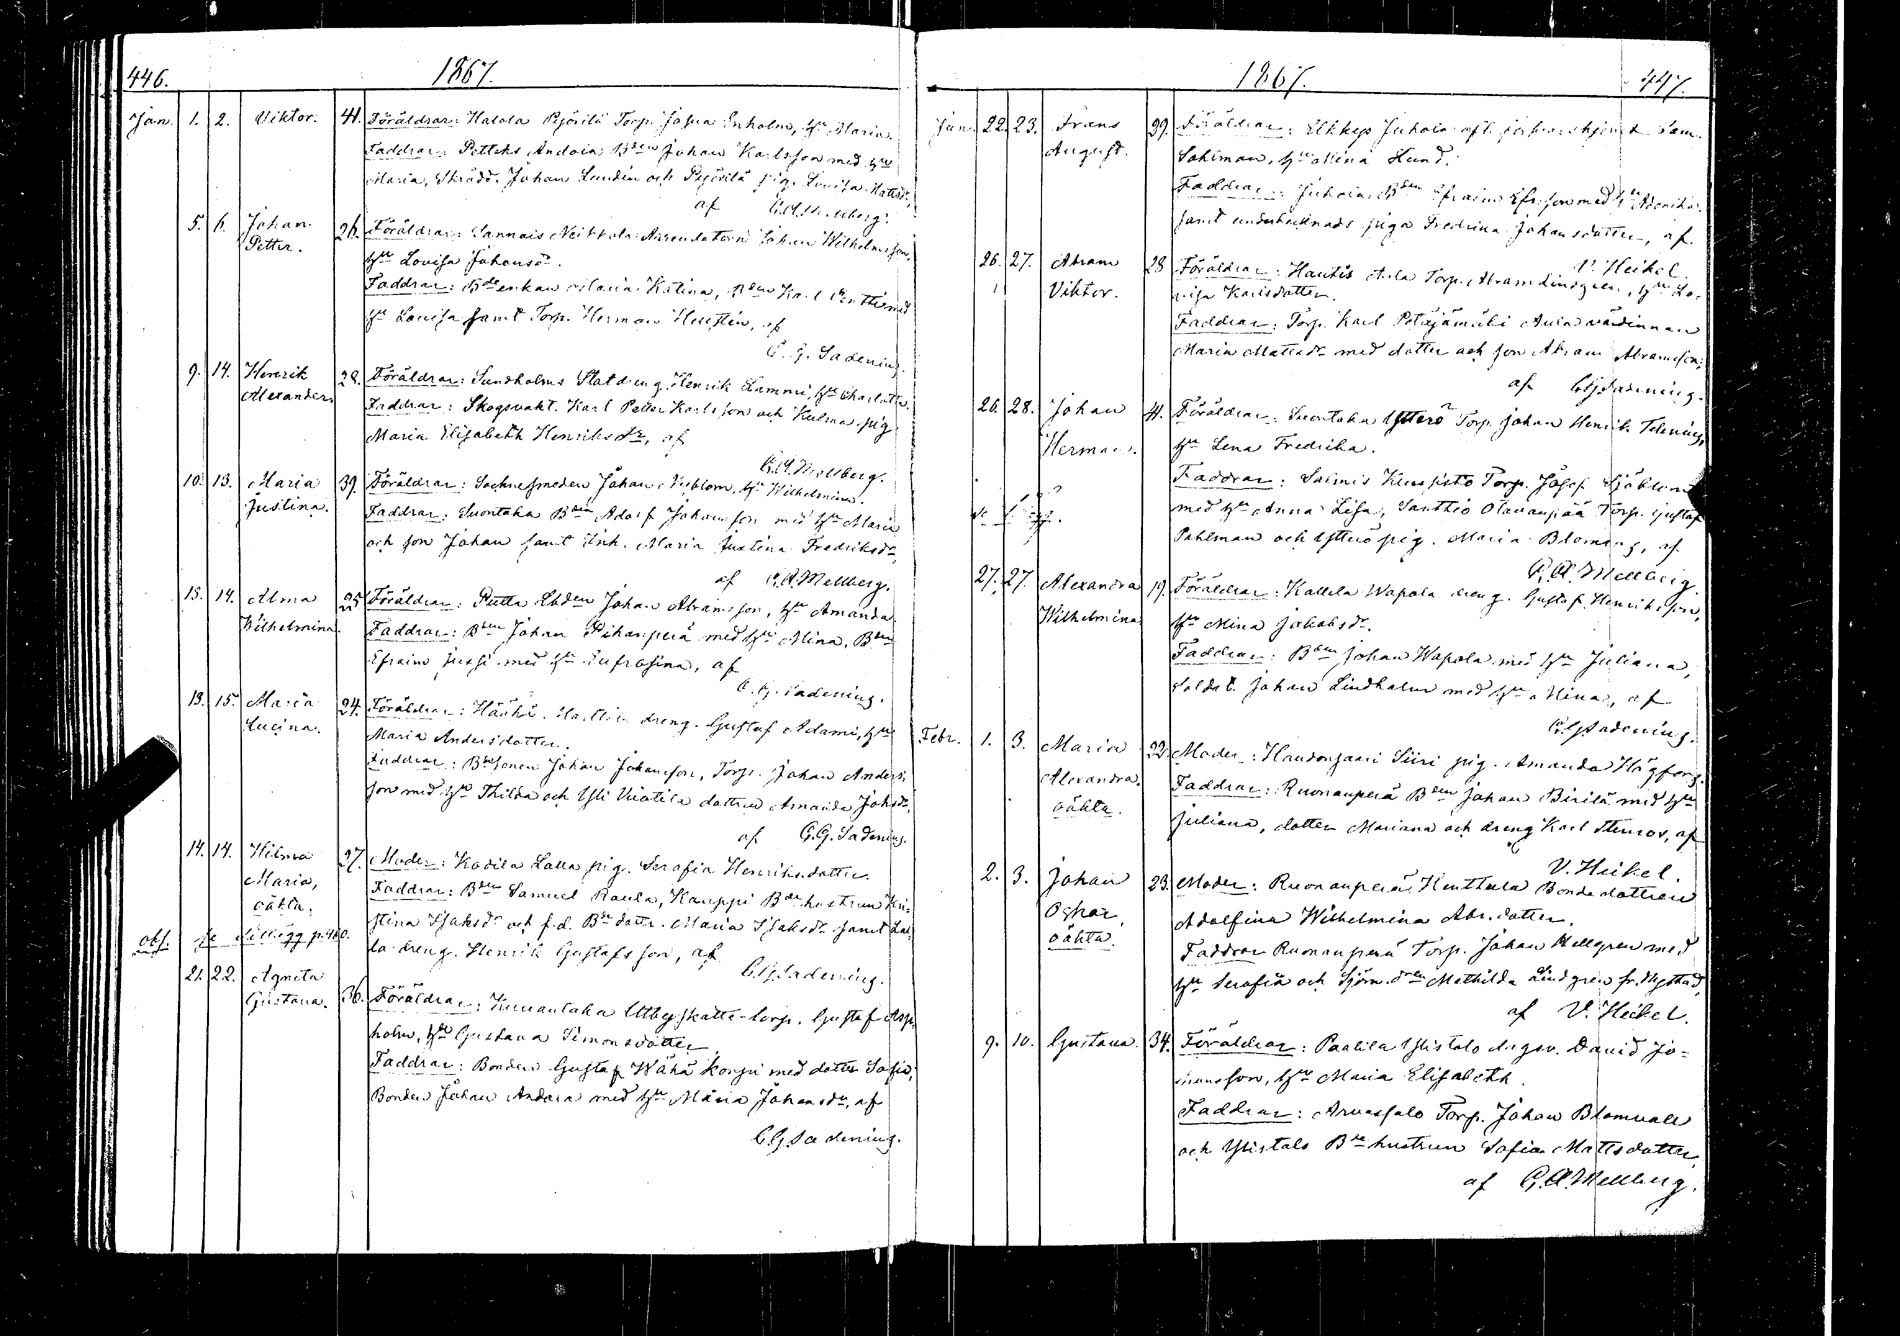 446.
1867.
Jan. 1. 2. Viktor. 41. Föräldrar: Halola Pjösilä Torp. Josua Enholm, hu Maria.
Faddrar: Petteks Andoin Bden Johan Karlsson med hu
Maria, Skrädd. Johan Lundin och Pjösilä pig. Lovisa Mattsdr,
af C.A. Mellberg.
5. 6. Johan 26. Föräldrar: Sannais Neitkola Arrendatorn Johan Wilhelmsson,
Petter. hu Lovisa Johansdr.
Faddrar: Enkan Maria Katina, Bden Karl Anttimed
hu Lovisa samt Torp. Herman Henstén, af
C. G. Sadening.
9. 14. Henrik 28. Föräldrar: Sundholms Statdreng Henrik Lammi, hu Charlotta.
Alexander. Faddrar: Skogsvakt. Karl Petter Karlsson och Kulma pig
Maria Elisabeth Henriksdr, af
C.A. Mellberg.
10. 13. Maria 39. Föräldrar: Sockne smeden Johan Nyblom, hu Wilhelmina.
Justina. Faddrar: Suontaka Bden Adolf Johansson med hu Maria
och son Johan samt Inh. Maria Justina Fredriksdr,
af C.A. Mellberg.
13. 14. Alma 25 Föräldrar: Putta Lbden Johan Abramsson, hu Amanda.
Wilhelmina. Faddrar: Bden Johan Pihanperä med hu Mina, Bden
Efraim Jussi med hu Eufrosina, af
C. G. Sadening.
13. 15. Maria 24. Föräldrar: Häähä Harttis dreng. Gustaf Adami, hu
Lucina. Maria Andersdotter.
Faddrar: Bdesonen Johan Johansson, Torp. Johan Anders-
son med hu Thilda och Yli Viiatila dottren Amanda Johsdr,
af C.G. Sadening.
14. 14. Hilma 27. Moder: Kodila Lalla pig. Serafia Henriksdotter.
Maria, Faddrar: Bden Samuel Raula, Kauppi Bde hustrun Kri-
oäkta. stina Isaksdr och f.d. Bde dotter Maria Isaksdr samt Lal-
obs. se tillägg p. 460. la dreng. Henrik Gustafsson, af
C.G. Sadening.
21. 22. Agneta
Gustava. 36. Föräldrar: Kuuantaka Utby skatte-torp. Gustaf Asp-
holm, hu Gustava Simonsdotter.
Faddrar: Bonden Gustaf Wähä Korpi med dotter Sofia,
Bonden Johan Andara med hu Maria Johansdr, af
C.G. Sadening.
1867.
447.
Jan. 22. 23. Frans 39. Föräldrar: Elkkys Juhola aft. Sam.
August. Sahlman, hu Mina Lund.
Faddrar: Juhola Bden Efraim Efr.son med hu Adonika
samt undertecknads piga Fredrika Johansdotter, af
V. Heikel.
26. 27. Abram 28 Föräldrar: Hautis Aula Torp. Abram Lindgren, hu Lo-
Viktor. visa Karlsdotter.
Faddrar: Torp. Karl Petäjämäki Aula värdinnan
Maria Mattsdr med dotter och son Abram Abramsson,
af C.G. Sadening.
26. 28. Johan 41. Föräldrar: Suontaka Ytterö Torp. Johan Henrik Telenius,
Herman. hu Lena Fredrika.
Faddrar: Salmis Kuusisto Torp. Josef Sjöblom
med hu Anna Lisa, Santtio Olavanpää Torp. Gustaf
Pahlman och Ytterö pig. Maria Blomberg, af
C.A. Mellberg.
27. 27. Alexandra 19. Föräldrar: Kallela Wapola dreng. Gustaf Henriksson,
Wilhelmina. hu Mina Jakobsdr.
Faddrar: Bden Johan Wapola med hu Juliana,
Soldat. Johan Lindholm med hu Mina, af
C.G. Sadening.
Febr. 1. 3. Maria 22. Moder: Haudonsaari Siiri pig. Amanda Högfors.
Alexandra. Faddrar: Ruonanperä Bden Johan Birilä med hu
oäkta. Juliana, dotter Mariana och dreng Karl Stenros, af
V. Heikel.
2. 3. Johan 23. Moder: Ruonanperä Henttula Bonde dottren
Oskar, Adolfina Wilhelmina Abr.dotter.
oäkta. Faddrar Ruonanperä Torp. Johan Hellgren med
hu Serafia och Sjöm. dren Mathilda Lindgren fr. Nystad,
af V. Heikel.
9. 10. Gustava. 34. Föräldrar: Paalila Ylistalo drgsv. David Jo-
hansson, hu Maria Elisabeth.
Faddrar: Arvassalo Torp. Johan Blomvall
och Ylistalo Bde hustrun Sofia Mattsdotter,
af C.A. Mellberg.